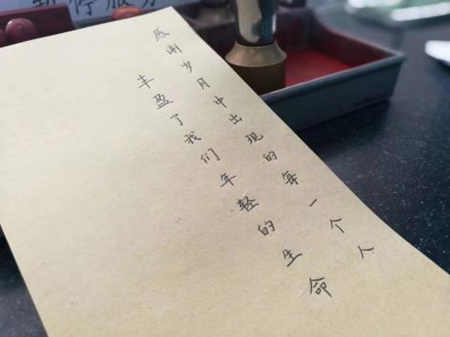 暂停服务
感谢岁月中出现的每一个人
丰盈了我们年轻的生命